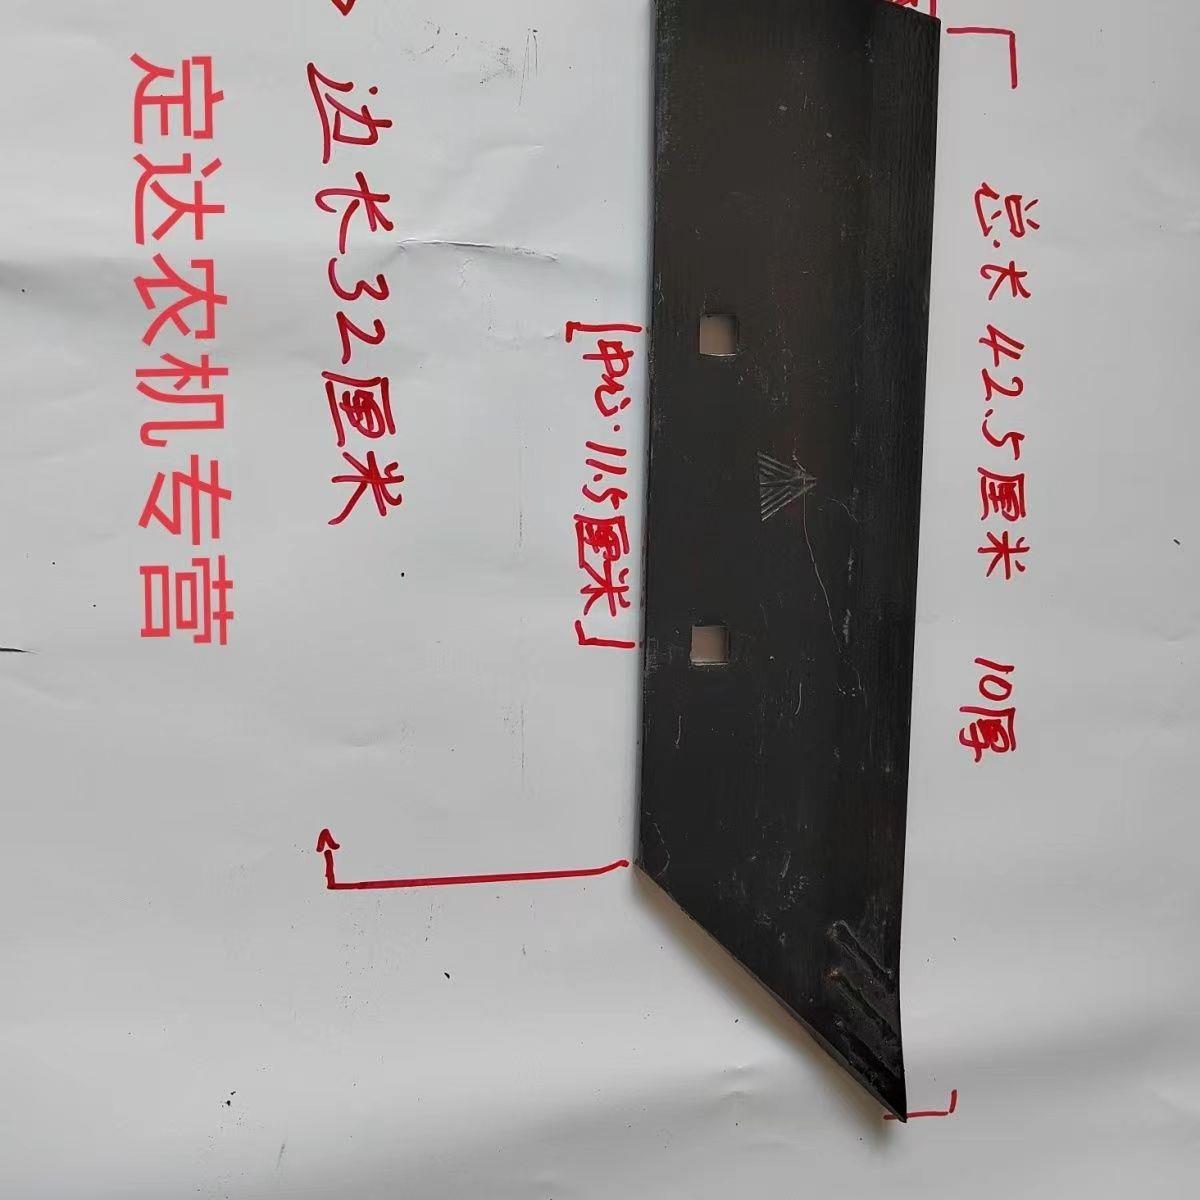 总长42.5厘米 10厚
中心.11.5厘米
边长32厘米
定达农机专营